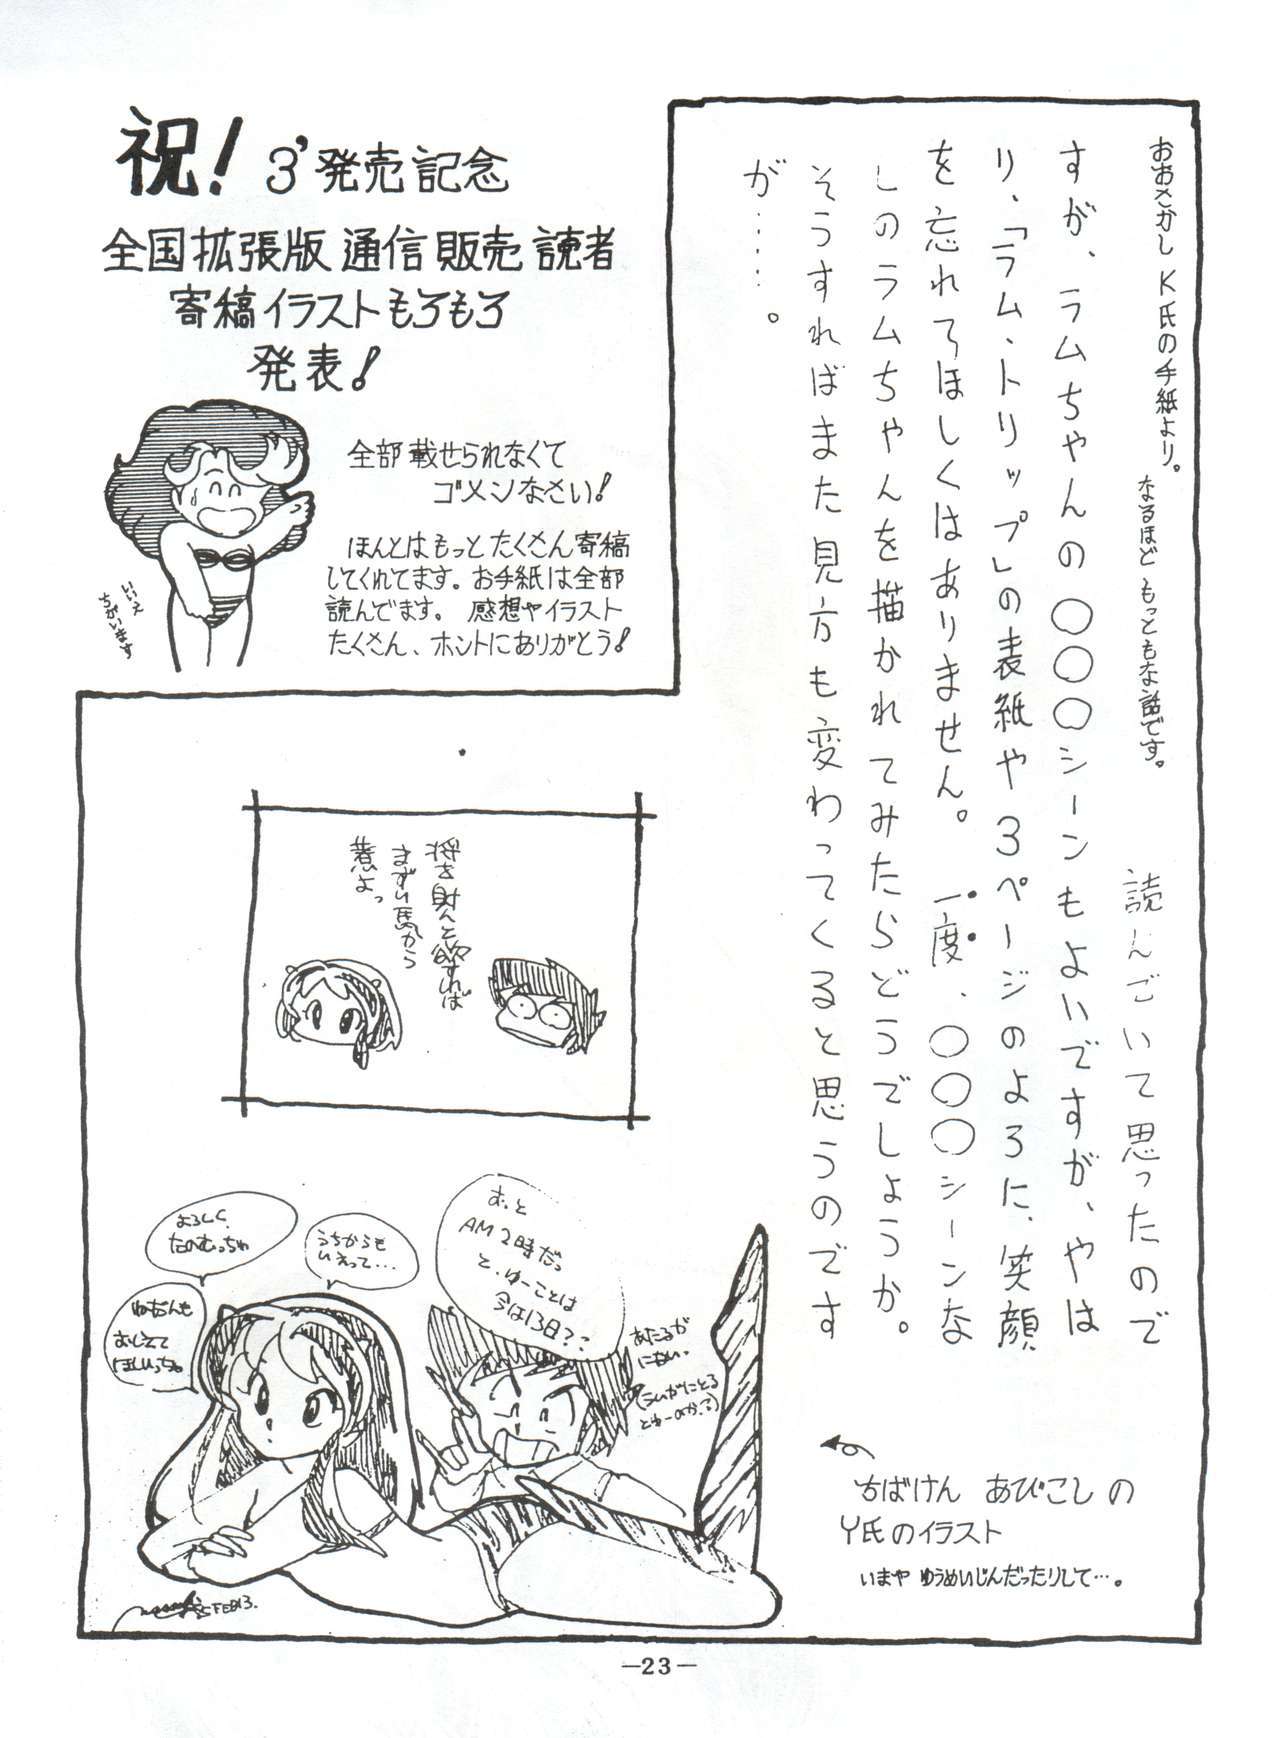 祝！ 3'発売記念
全国拡張版 通信販売 読者
寄稿イラストもろもろ
発表！
全部 載せられなくて
ゴメンなさい！
ほんとはもっとたくさん寄稿
してくれてます。お手紙は全部
読んでます。 感想やイラスト
たくさん、ホントにありがとう！
いいえ
ちがいます
おおさかし K氏の手紙より。
なるほど もっともな話です。
読んでいて思ったので
すが、ラムちゃんの〇〇〇シーンもよいですが、やは
り、「ラム、トリップ」の表紙や3ページのように、笑顔
を忘れてほしくはありません。 一度、〇〇〇シーンな
しのラムちゃんを描かれてみたらどうでしょうか。
そうすればまた見方も変わってくると思うのです
が……。
将を射んと欲すれば
まずい馬から
よっ
よろしく
たのむっちゃ
うちからも
いえって…
おしえて
ほしいっちゃ
おっと
AM 2時だっ
と、ゆーことは
今は13日??
あたるが
にない。
ちばけん あびこしの
Y氏のイラスト
いまや ゆうめいじんだったりして…。
FEB13.
—23—